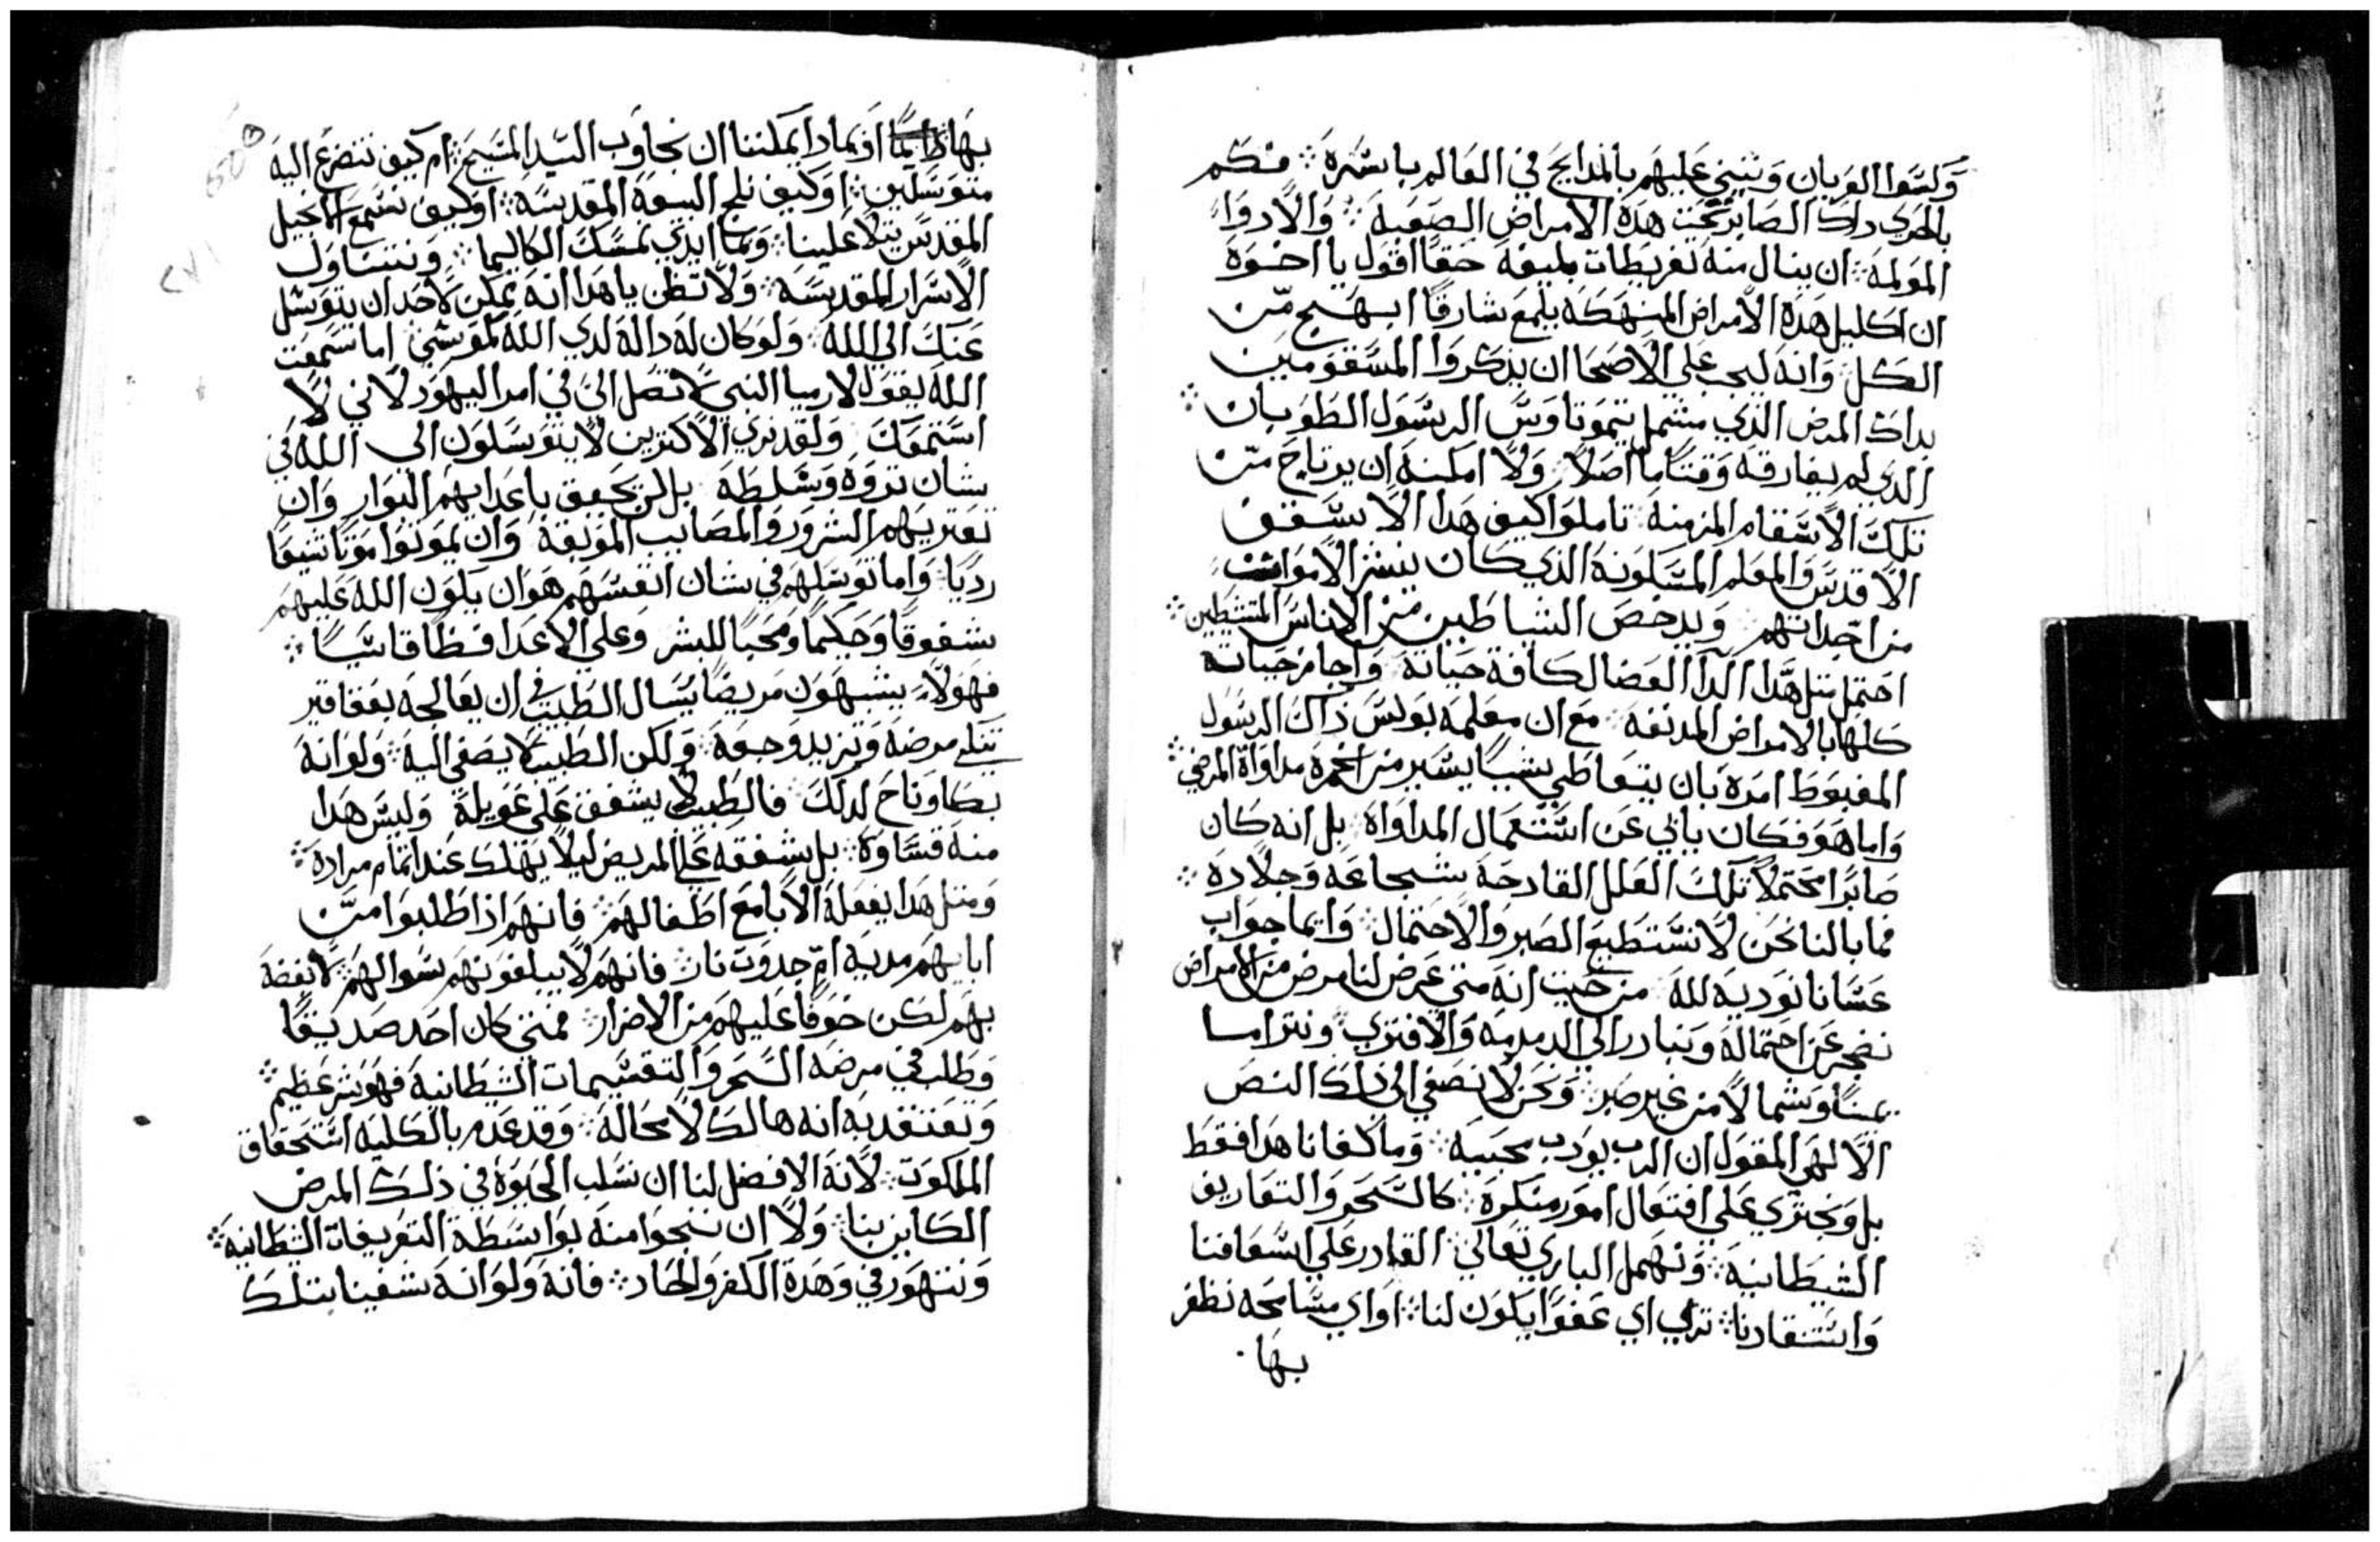 ولسوا العريان وننثني عليهم بالمدايح في العالم باسره ؛ فكم
بالحري داك الصابر تحت هده الامراض الصعبة ؛ والادواء
المولمة ؛ ان ينال منه تفريطات بليغة حقا اقول يا اخوة
ان اكليل هده الامراض المنهكة يلمع شارقا ابهج من
الكل وانه ليجب علي الاصحا ان يذكروا المسقومين
بداك المرض الذي شمل تيموتاوس الرسول الطوبان ؛
الدي لم يفارقه وقتا ما اصلا ؛ ولا امكنه ان يرتاح من
تلك الاسقام المزمنة تاملوا كيف هدا الاسقف
الاقدس والمعلم المسكونة الذي كان ينشر الاموات
من اجداثهم ؛ ويدحض الشياطين من الاناس المتشيطين ؛
احتمل مثل هدا الدآ العضال كافة حياته واجاز حياته
كلها بالامراض المدنفة مع ان معلمه بولس ذاك الرسول
المغبوط امره بان يتعاطي شيا يسير من الخمرة مداواة المرض ؛
واما هو فكان يابي عن استعمال المداواة بل انه كان
صابرا محتملا تلك العلل القادحة بشجاعة وجلادة ؛
فما بالنا نحن لا نستطيع الصبر والاحتمال ؛ وايما جواب
عسانا نوديه لله من حيث انه متي عرض لنا مرض من الامراض
نضجر عن احتماله ونبادر الي الدمدمة والافتري ؛ ونترامسا
يمينا وشمالا من غير صبر ؛ ونحن لا نصغي الي ذلك النص
الالهي المقول ان الرب يودب محبيه ؛ وما كفانا هدا فقط
بل ونجتري علي افتعال امور منكرة ؛ كالسحر والتعازيف
الشيطانية ؛ ونهمل الباري تعالي القادر علي اسعافنا
واستنقادنا ؛ تري اي عفوا يكون لنا ؛ او اي مسامحة نظفر
بها ·
بها او بمادا يمكننا ان نجاوب السيد المسيح ؛ ام كيف نتضرع اليه
متوسلين ؛ او كيف نلج البيعة المقدسة ؛ او كيف نسمع الانجيل
المقدس يتلا علينا ؛ وبما ايدي نمسك الكاليما ؛ ونتناول
الاسرار المقدسة ؛ ولا تظن يا هدا انه يمكن لاحد ان يتوسل
عنك الي الله ؛ ولو كان له دالة لدي الله كموسي اما سمعت
الله يقول لارميا النبي لا تصل الي في امر اليهود لاني لا
استمعك ؛ ولقد نري الاكثرين لا يتوسلون الي الله في
شان ثروة وسلطة بل لن يحيق باعدايهم البوار وان
تعتريهم الشرور والمصايب الموبقة وان يموتوا موتا شنيعا
رديا ؛ واما توسلهم في شان انفسهم هو ان يكون الله عليهم
شفوقا وحكيما ومحبا للبشر وعلي الاعدا فظا قاسيا ؛
فهولاء يشبهون مريضا يسال الطبيب في ان يعالجه بعقاقير
تنكي مرضه وتزيد وجعه ؛ ولكن الطبيب لا يصغي اليه ؛ ولو انه
بكا وناح لدلك فالطبيب لا يشفق علي عويله وليس هدا
منه قساوة ؛ بل شفقة علي المريض ليلا يهلك عند اتمام مراده ؛
ومثل هدا يفعله الابا مع اطفالهم ؛ فانهم اذا طلبوا من
ابايهم مدية ام جدوت نار ؛ فانهم لا يبلغونهم سوالهم ؛ لا بغضة
بهم لكن خوفا عليهم من الاضرار ؛ فمتي كان احد صديقا
وطلب في مرضه السحر والتقسيمات الشيطانية فهو شر عظيم ؛
ونعتقد به انه هالك لا محالة ؛ وقد عدم بالكلية استحقاق
الملكوت ؛ لانه الافضل لنا ان نسلب الحيوة في ذلك المرض
الكاين بنا ؛ ولا ان ننجوا منه بواسطة التعزيفات الشيطانية ؛
ونتهور في وهدة الكفر والحاد ؛ فانه ولو انه شفينا بتلك